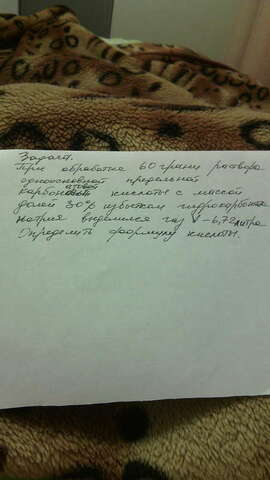 Задача.
При обработке 60 грамм раствора
одноосновной предельной
карбоновой кислоты с массой
долей 30% избытком гидрокарбоната
натрия выделился газ V-6,72литра
Определить формулу кислоты.